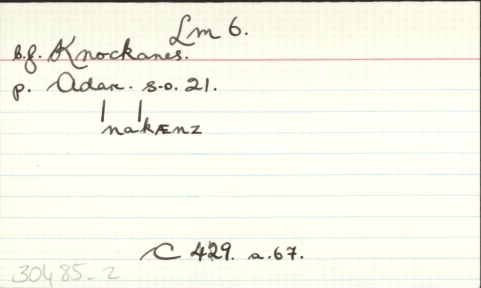 Lm 6.
b.f. Knockanes.
p. Adare. s.o. 21.
ˈnaˈkænz
C 429. a.67.
30485-2